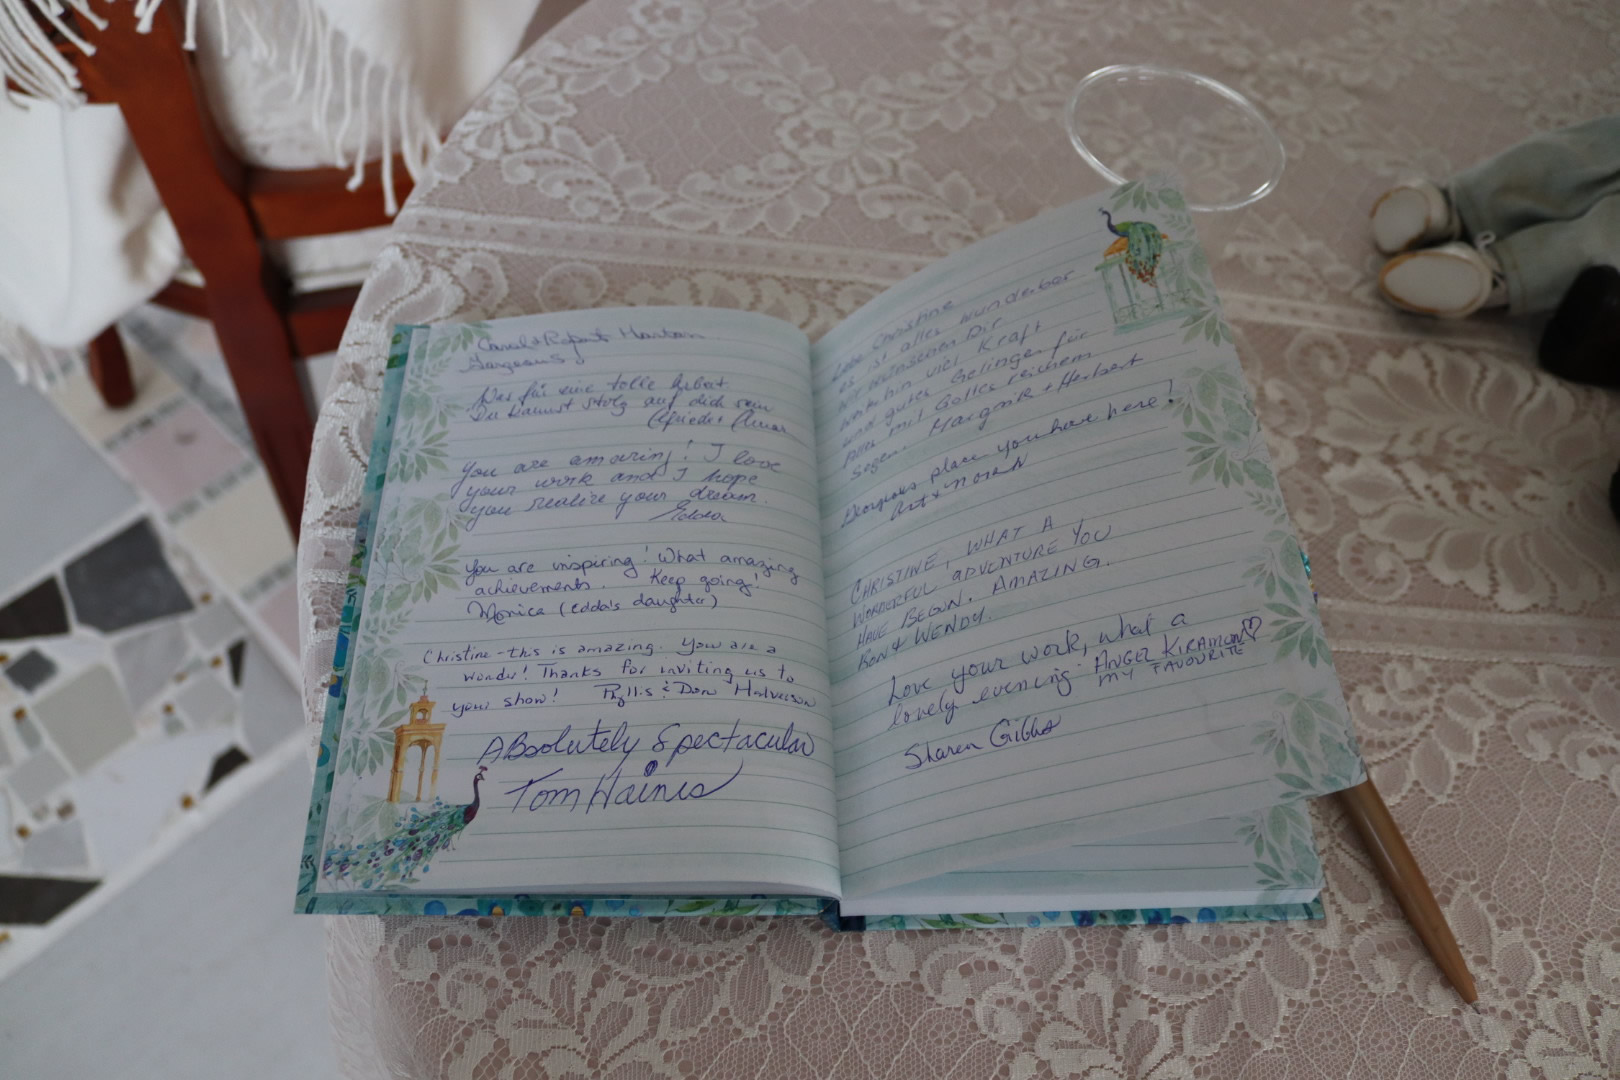 Carol & Rupert
Gorgeous!
Was für eine tolle Arbeit
Du kannst stolz auf dich sein
You are amazing! I love
your work and I hope
you realize your dream.
Edda
You are inspiring! What amazing
achievements. Keep going!
Monica (Edda's daughter)
Christine - this is amazing. You are a
wonder! Thanks for inviting us to
your show! Phyllis & Don Halverson
Absolutely Spectacular
Tom Haines
Liebe Christine
es ist alles wunderbar
wir wünschen Dir
weiterhin viel Kraft
und gutes Gelingen für
alles mit Gottes reichem
Segen. + Herbert
Gorgeous place you have here!
Art & Norah
CHRISTINE, WHAT A
WONDERFUL ADVENTURE YOU
HAVE BEGUN. AMAZING.
RON & WENDY.
Love your work, what a
lovely evening. ANGEL KIRAMON♡
MY FAVOURITE
Sharen Gibbs